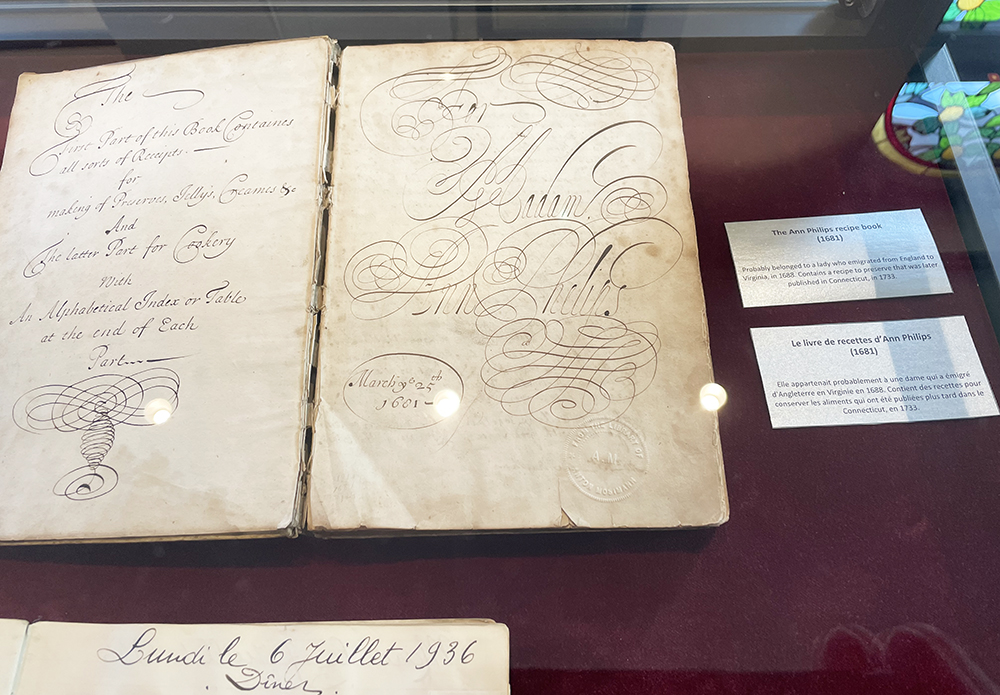 The
First Part of this Book Containes
all sorts of Receipts.
for
making of Preserves, Jelly's, Creames &c
And
The latter Part for Cookery
With
An Alphabetical Index or Table
at the end of Each
Part
For
Ann Philips
March ye 25th
1681
The Ann Philips recipe book
(1681)
Probably belonged to a lady who emigrated from England to
Virginia, in 1688. Contains a recipe to preserve that was later
published in Connecticut, in 1733.
Le livre de recettes d'Ann Philips
(1681)
Elle appartenait probablement à une dame qui a émigré
d'Angleterre en Virginie en 1688. Contient des recettes pour
conserver les aliments qui ont été publiées plus tard dans le
Connecticut, en 1733.
Lundi le 6 Juillet 1936
Dîner